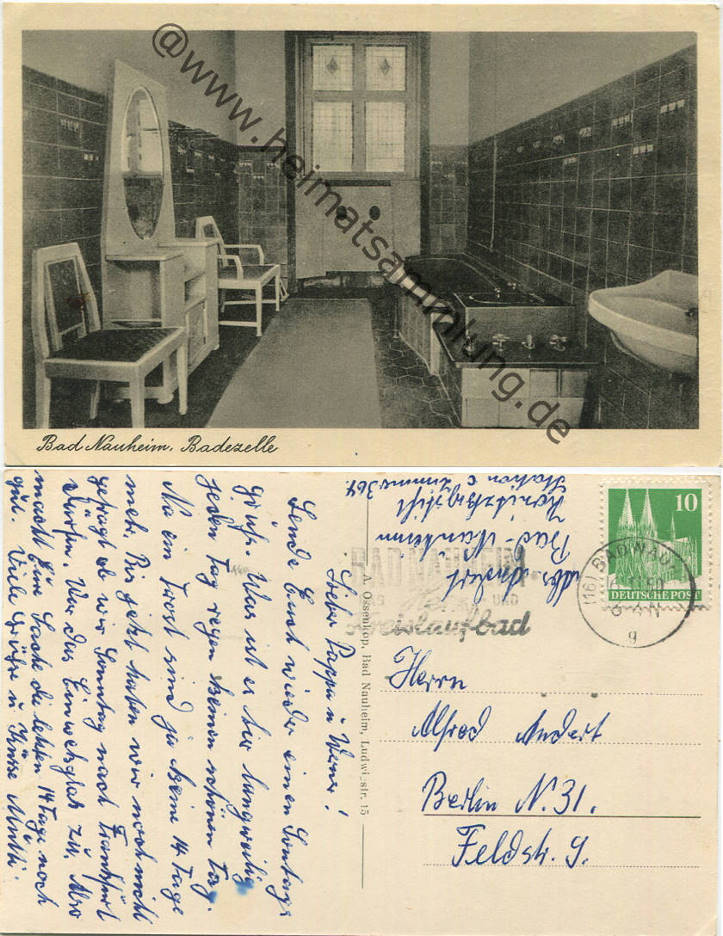 @www.heimatsammlung.de
Bad Nauheim. Badezelle
Lieber Pappa u Werner!
Sende Euch wieder einen Sontags
grüß. Was ist es hier langweilig
jeden Tag regen keinen schönen Tag.
Na ein Trost sind ja keine 14 Tage
mehr. Bis jetzt haben wir noch nicht
gefragt ob wir Sonntag nach Frankfurt
dürfen. Also
macht Eure Sache die letzten 14 Tage noch
gut. Viele Grüße u Küsse Mutti.
A. Ossenkop, Bad Nauheim, Ludwigstr. 15
Bad-Nauheim
Station Zimmer 364.
BAD NAUHEIM
DAS Herz- UND
Kreislaufbad
(16) BAD NAUHEIM
g
10
DEUTSCHE POST
Herrn
Alfred Andert
Berlin N. 31.
Feldstr. 9.